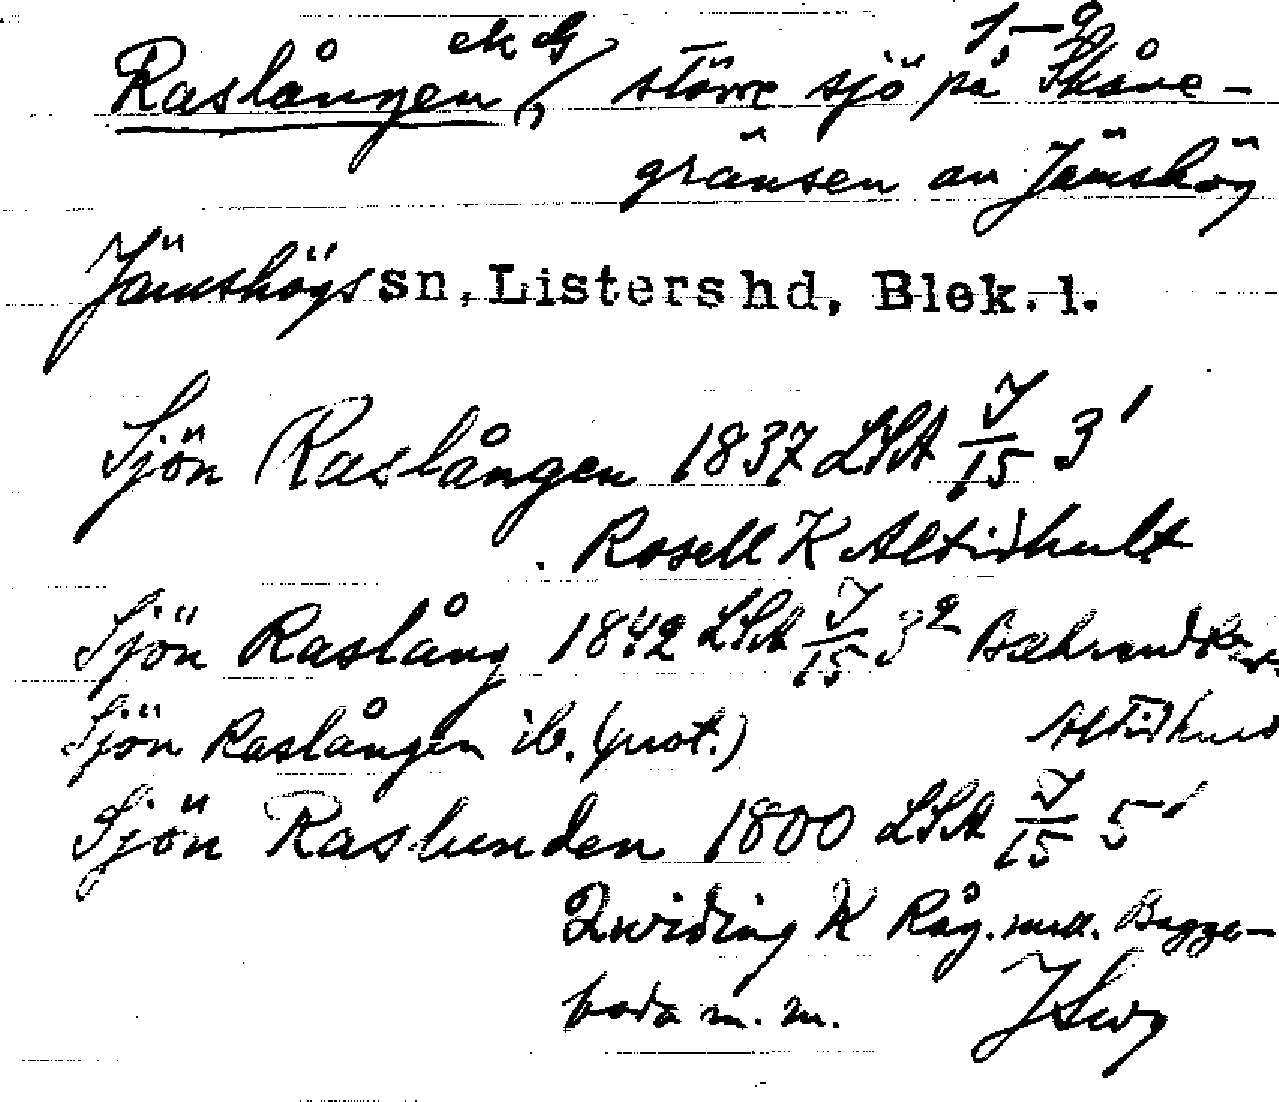 Raslången, ek G 15-9 större sjö på Skåne-
gränsen av Jämshög
Jämshögs sn, Listers hd, Blek. l.
Sjön Raslången 1837 LSA J/15 3¹
Rosell K Altidhult
Sjön Raslång 1842 LSA J/15 3² Bæhrendt
Sjön Raslången ib. (prot.) Altidhult
Sjön Raslunden 1800 LSA J/15 5¹
Qwiding K Råg. mell. Bagge-
boda m. m.